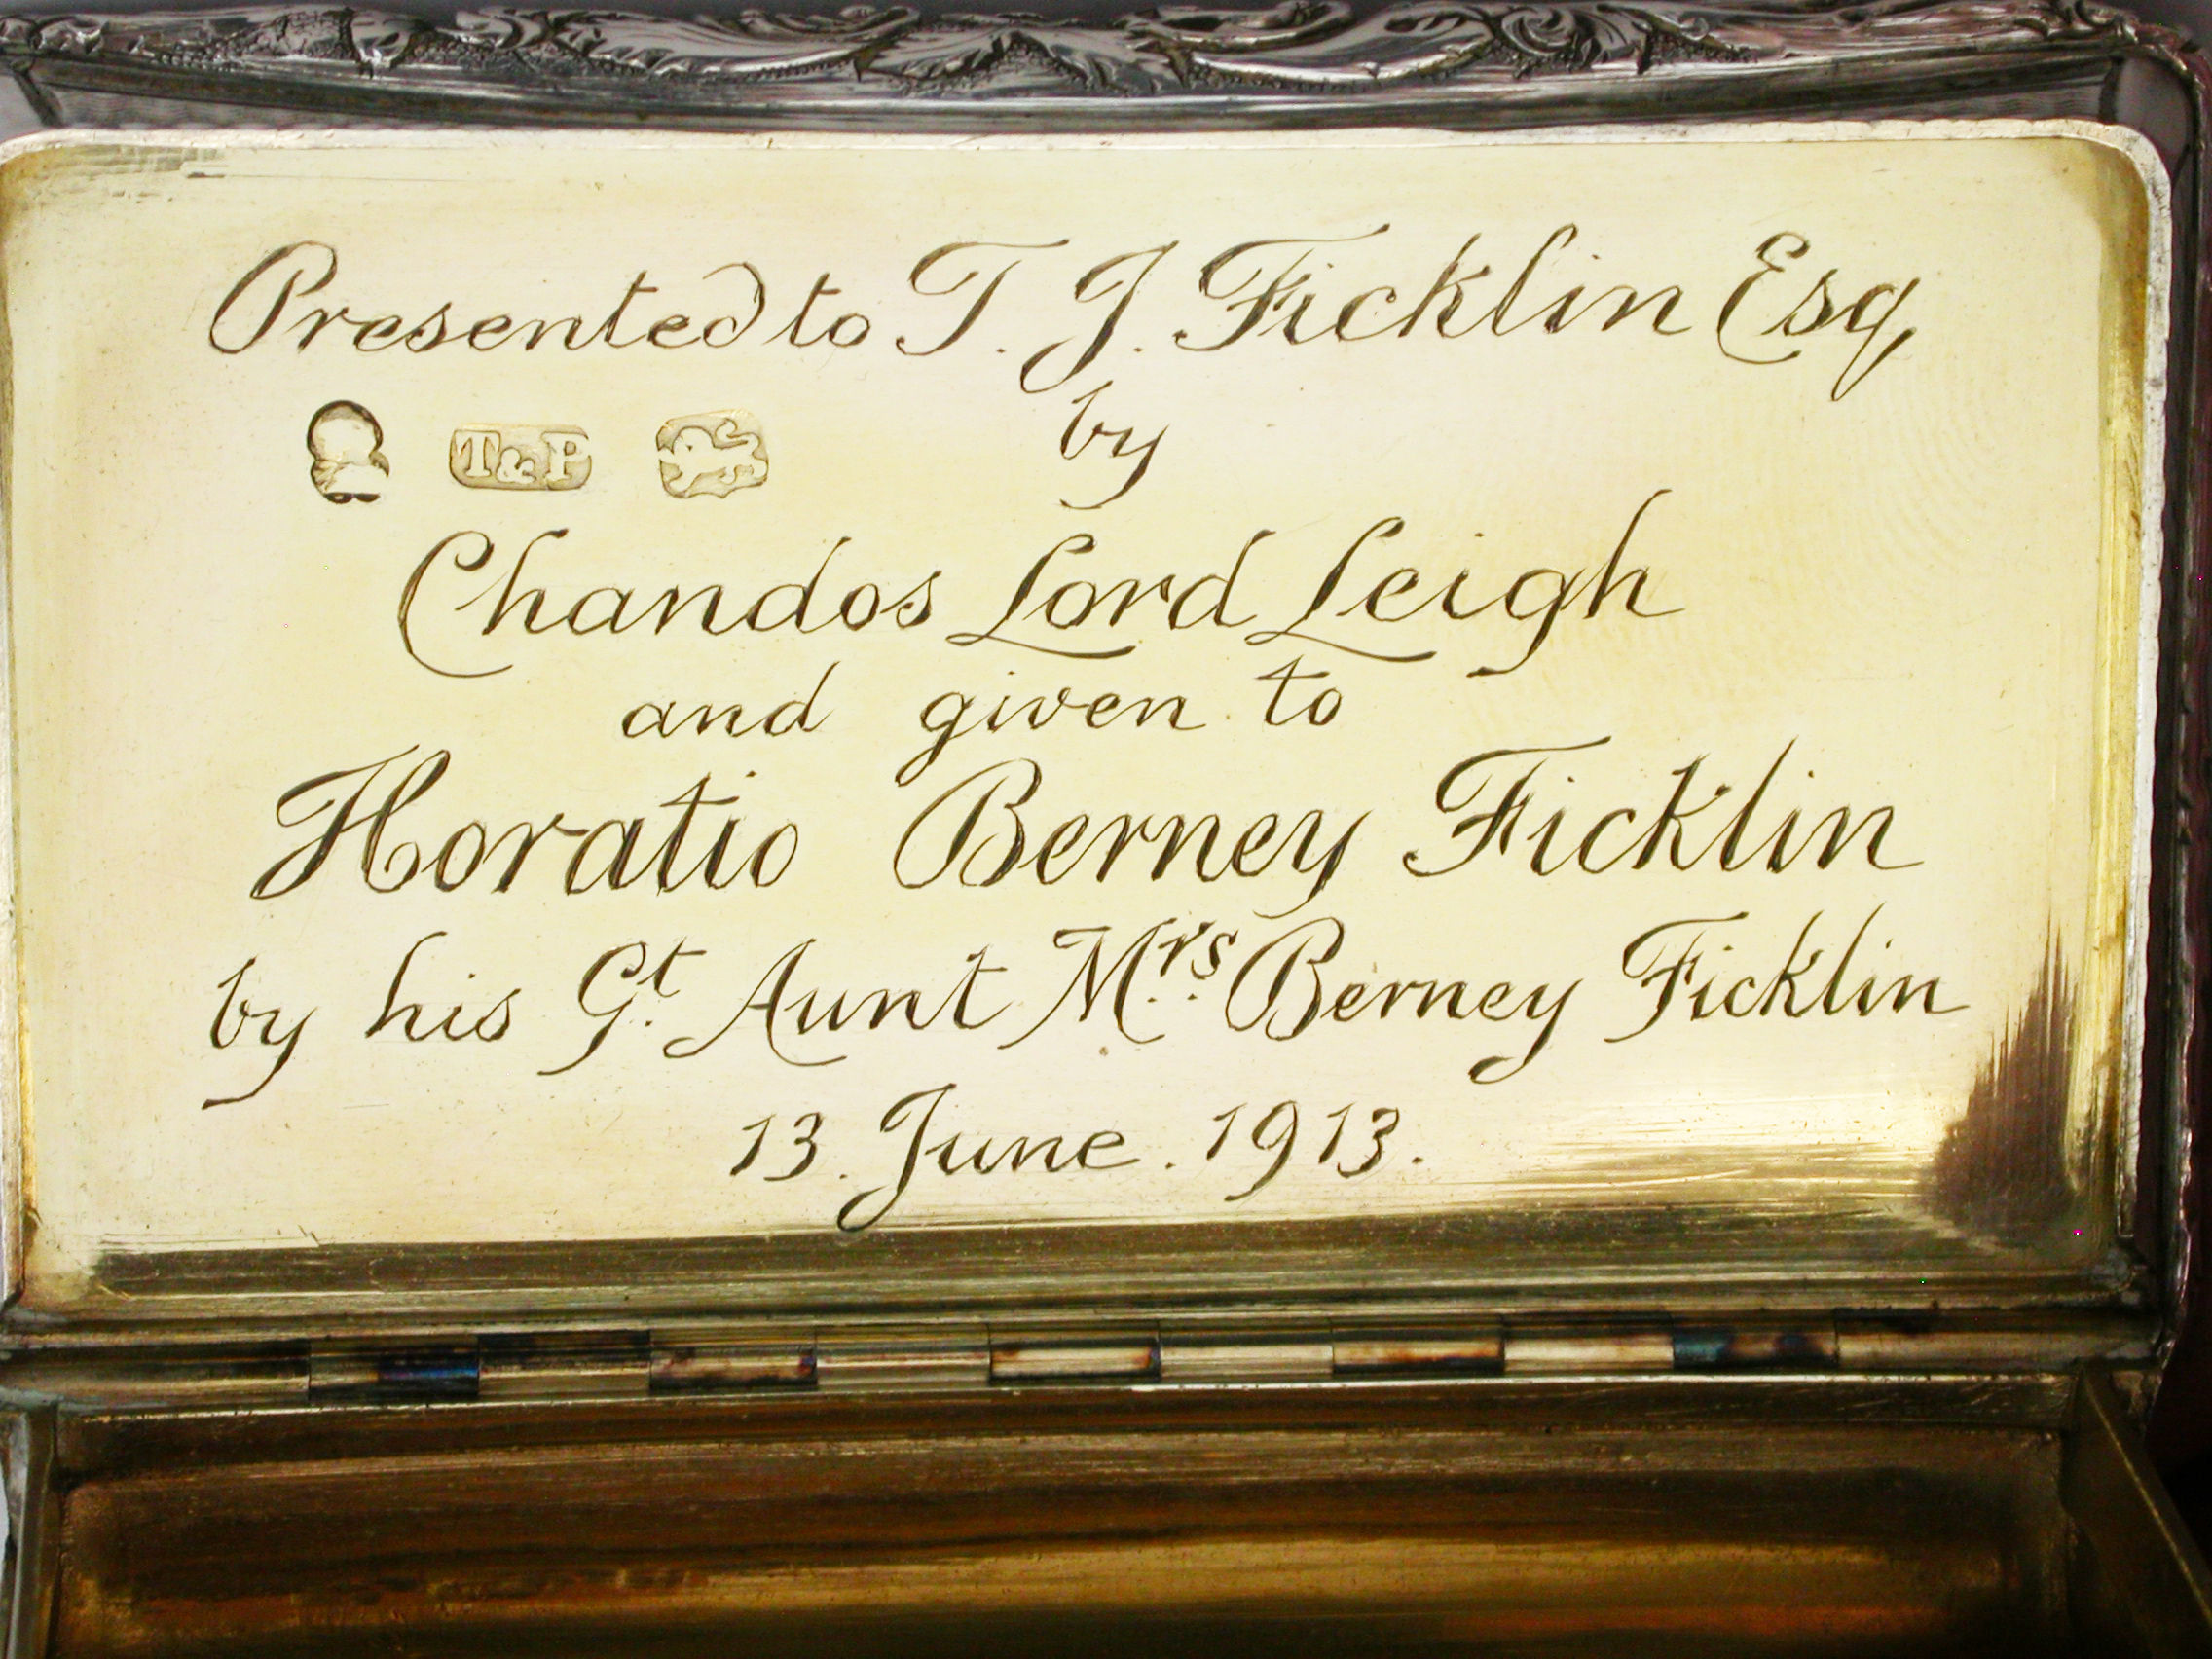 Presented to T. J. Ficklin Esq
by
T&P
Chandos Lord Leigh
and given to
Horatio Berney Ficklin
by his Gt. Aunt Mrs Berney Ficklin
13. June. 1913.